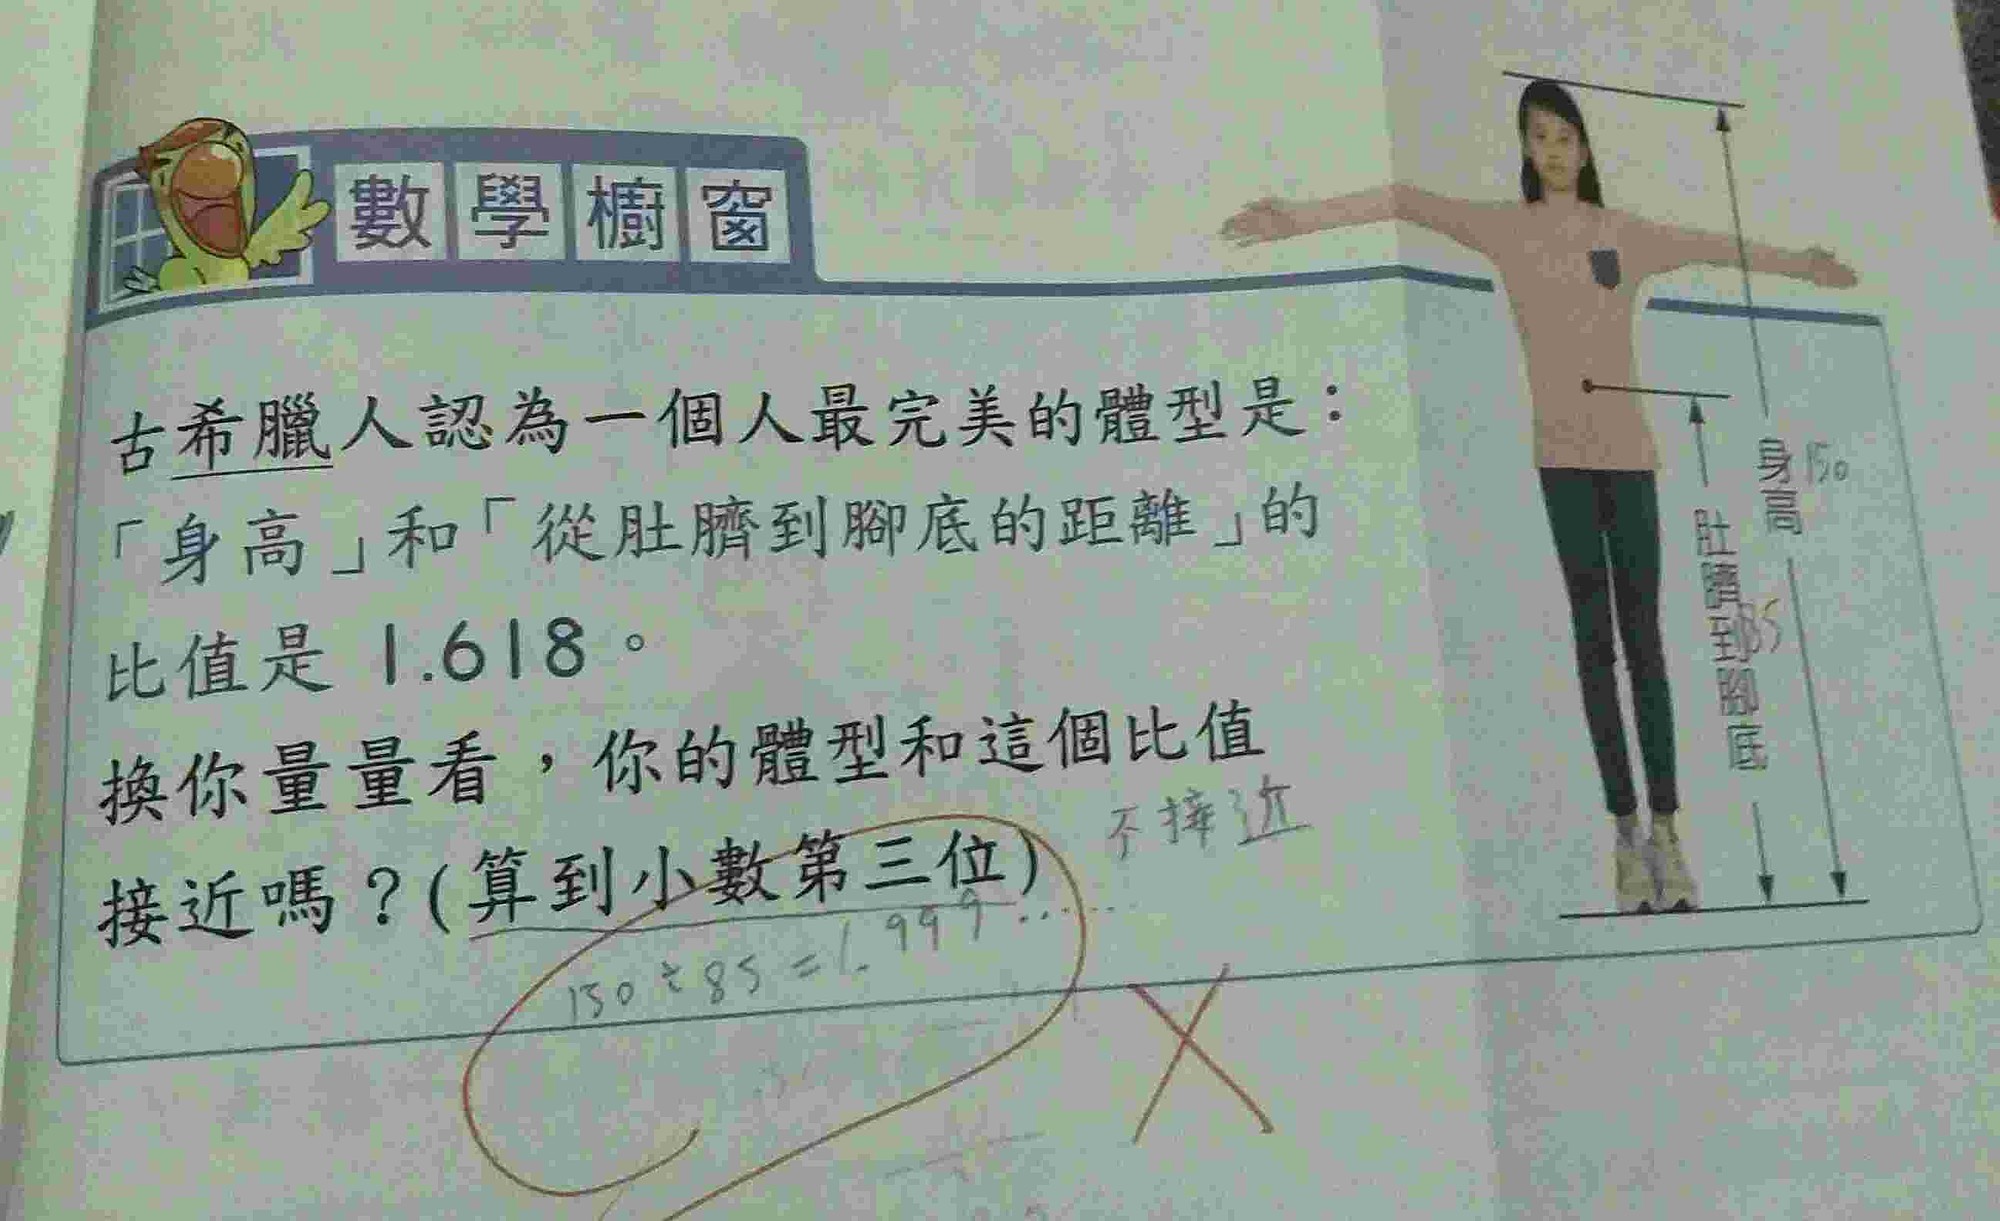 數學櫥窗
古希臘人認為一個人最完美的體型是：
「身高」和「從肚臍到腳底的距離」的
比值是 1.618。
換你量量看，你的體型和這個比值
接近嗎？(算到小數第三位)
不接近
150÷85=1.999……
身高
150
肚臍到腳底
85